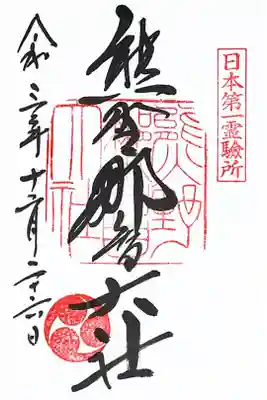 日本第一霊驗所
熊野那智大社
令和三年十二月二十六日